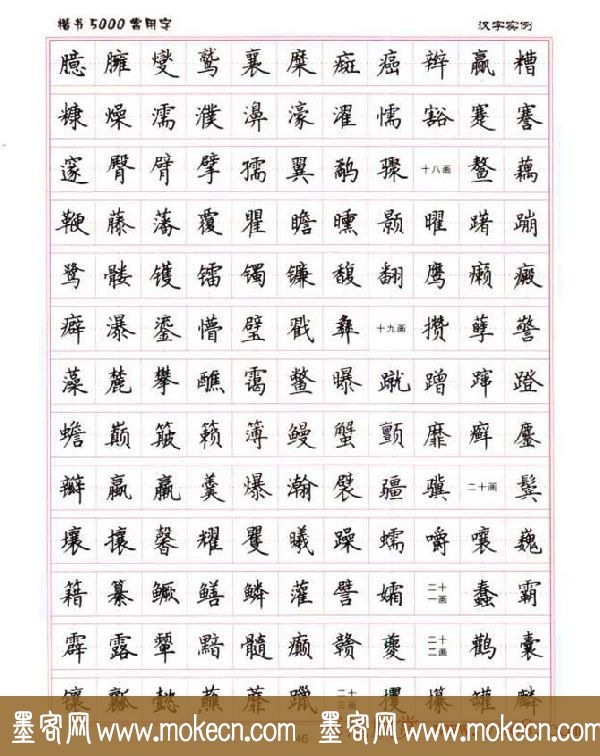 楷书5000常用字 汉字实例
臆 臃 燮 鹫 襄 糜 癍 癌 辫 赢 糟
糠 燥 濡 濮 濞 濠 濯 懦 豁 蹇 謇
邃 臀 臂 擘 孺 翼 鹬 骤 十八画 鳌 藕
鞭 藤 藩 覆 瞿 瞻 曛 颢 曜 躇 蹦
鹭 髅 镬 镭 镯 镰 馥 翻 鹰 癞 癜
癖 瀑 鎏 懵 璧 戳 彝 十九画 攒 孽 警
藻 麓 攀 醮 霭 鳖 曝 蹴 蹭 蹿 蹬
蟾 巅 簸 籁 簿 鳗 蟹 颤 靡 癣 鏖
瓣 羸 羹 爆 瀚 襞 疆 骥 二十画 鬓
壤 攘 馨 耀 矍 曦 躁 蠕 嚼 嚷 巍
籍 纂 鳜 鳝 鳞 灌 譬 孀 二十一画 蠢 霸
霹 露 颦 黯 髓 癫 赣 夔 二十二画 鹳 囊
镶 瓤 懿 蘸 蘼 躐 二十三画 攫 攥 罐 麟
46
墨客网 www.mokecn.com 墨客网 www.mokecn.com